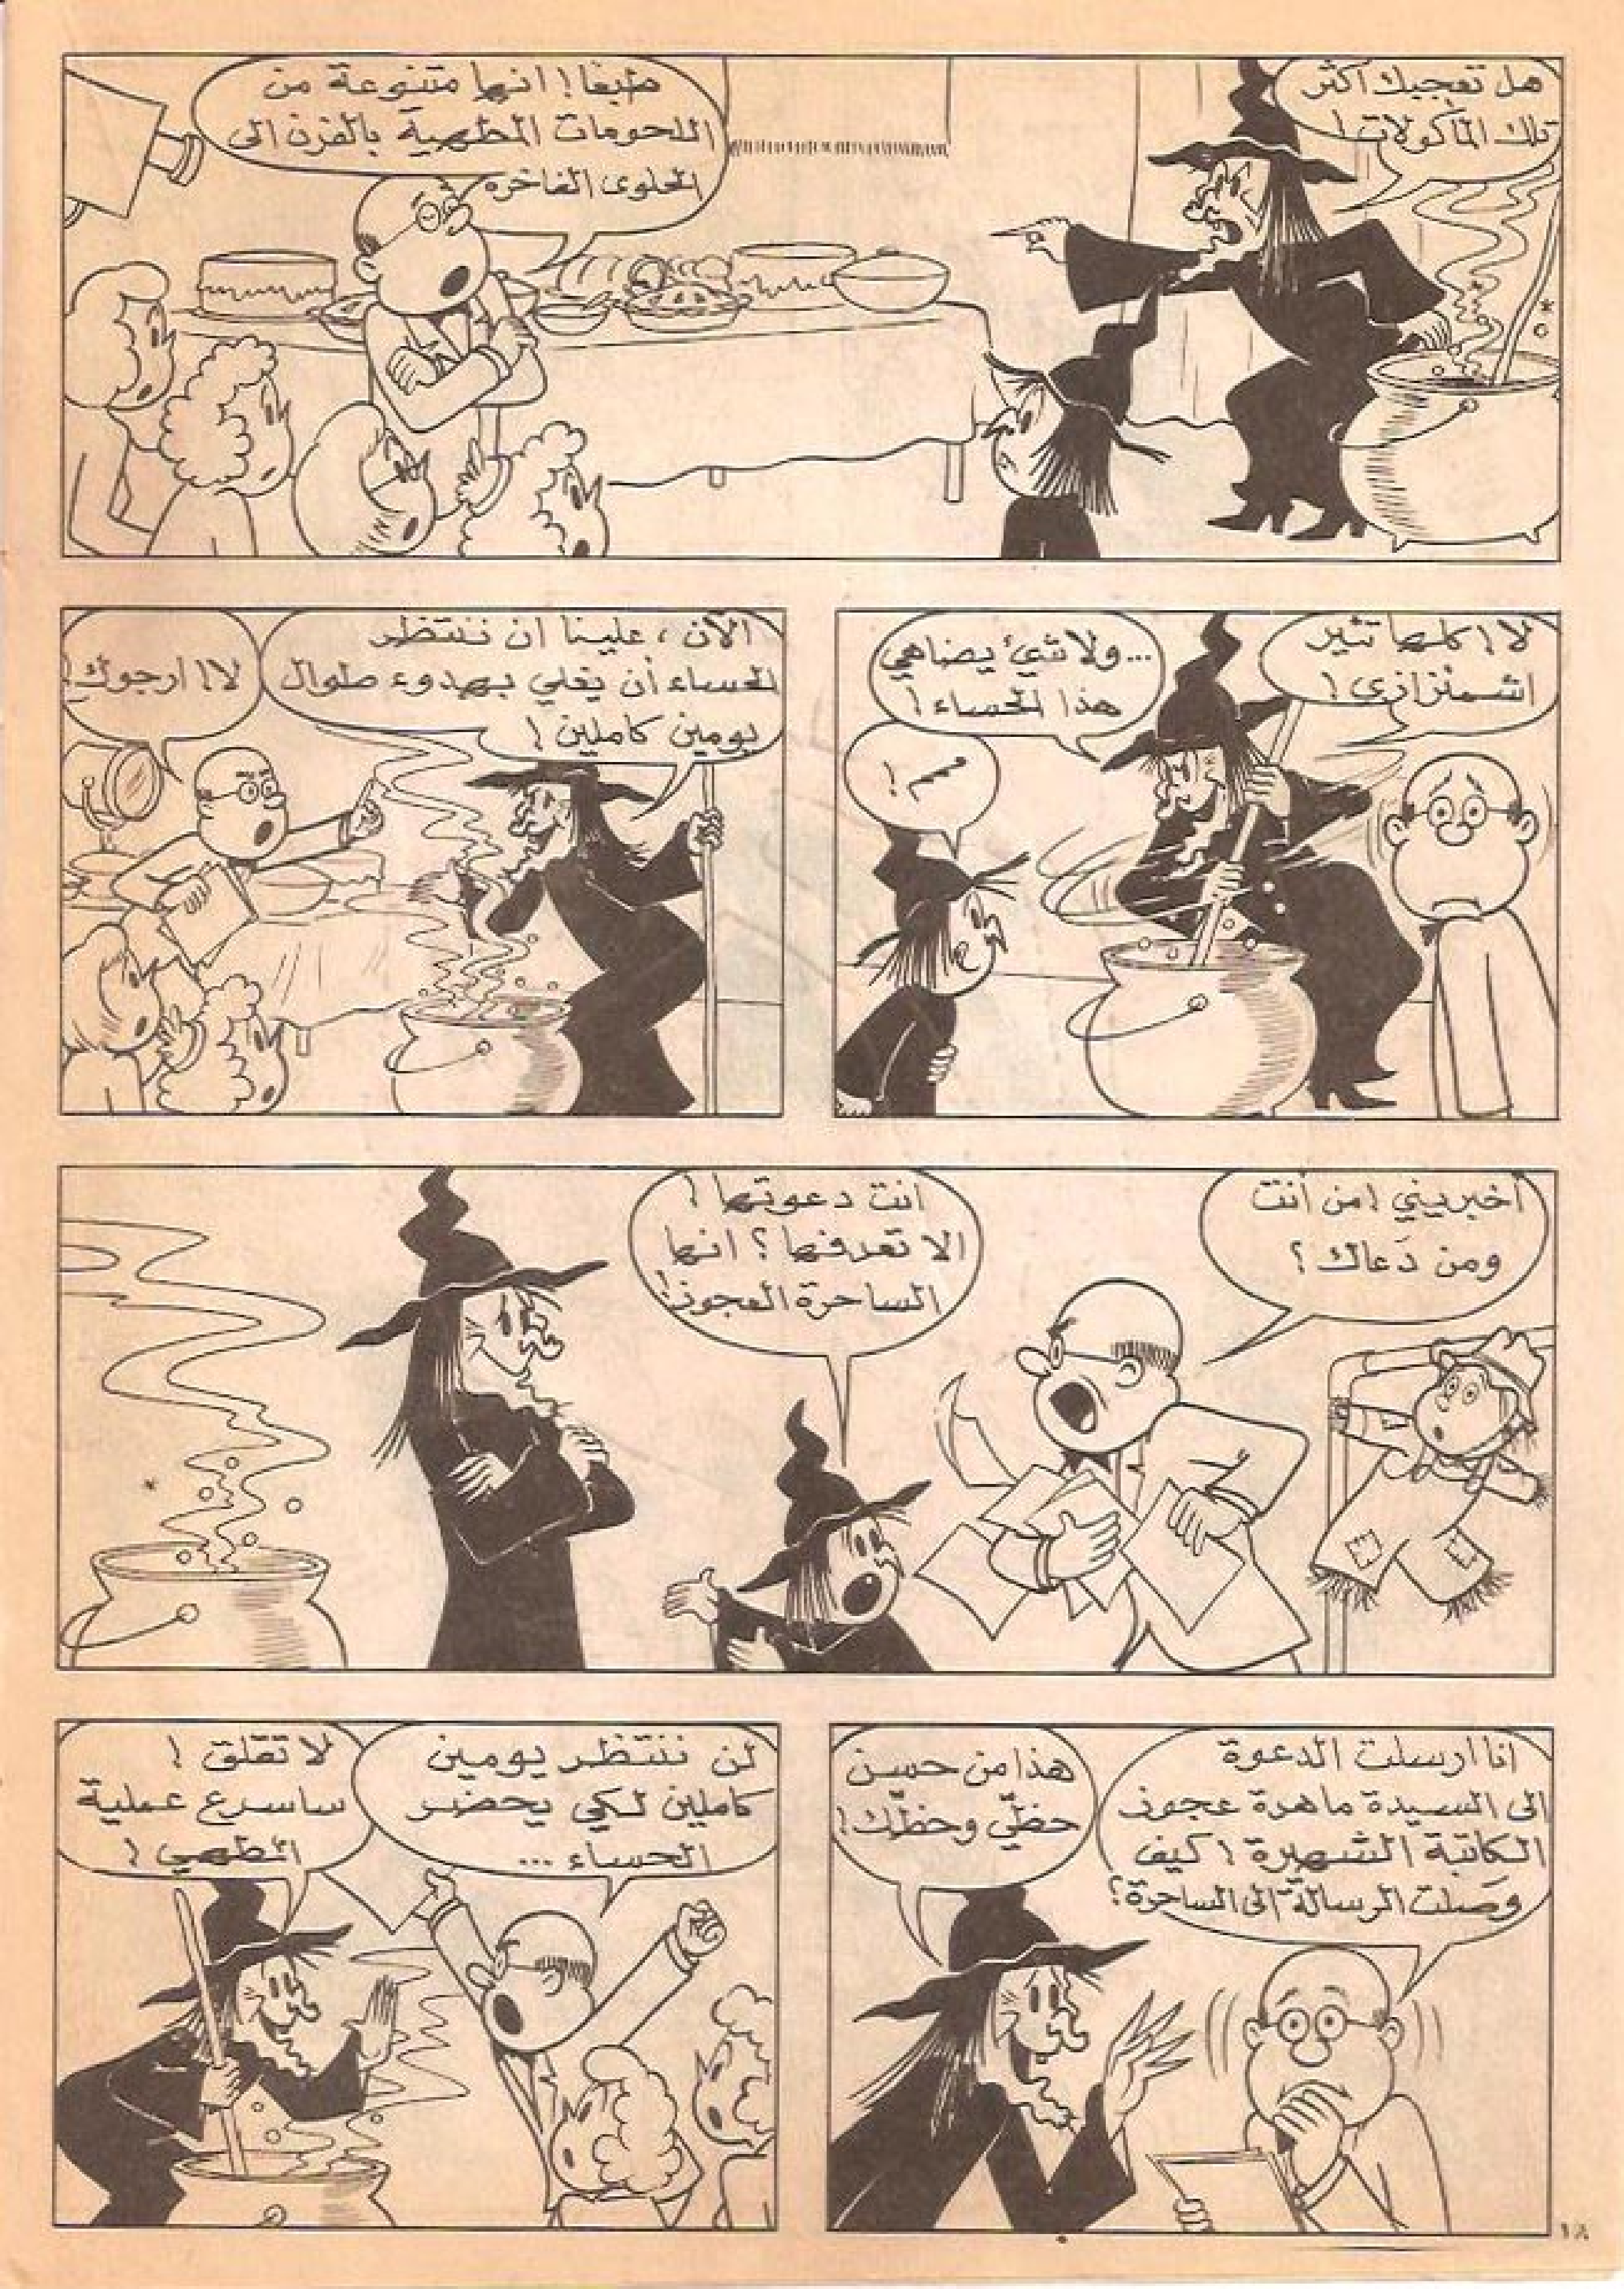 هل تعجبك أكثر
تلك المأكولات!
طبعا! انها متنوعة من
اللحومات المطهية بالفرن الى
الحلوى الفاخره
لا! كلها تثير
اشمئزازي!
...ولا شيئ يضاهي
هذا الحساء!
الآن، علينا ان ننتظر
الحساء أن يغلي بهدوء طوال
يومين كاملين!
لا! ارجوك!
أخبريني! من أنت
ومن دَعاك؟
انت دعوتها!
الا تعرفها؟ انها
الساحرة العجوز!
انا ارسلت الدعوة
الى السيدة ماهرة عجوز
الكاتبة الشهيرة! كيف
وصلت الرسالة الى الساحرة؟
هذا من حسن
حظّي وحظّك!
لن ننتظر يومين
كاملين لكي يحضر
الحساء ...
لا تقلق!
ساسرع عملية
الطهي!